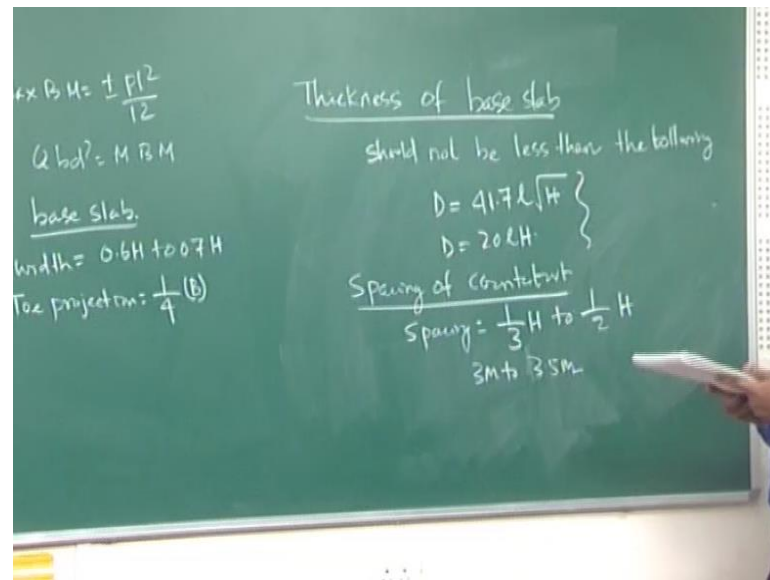 BM = ± pl²/12
Qbd² = M BM
base slab.
width = 0.6H to 07H
Toe projection = 1/4 (B)
Thickness of base slab
should not be less than the following
D = 41.7 l √H
D = 20 l H
Spacing of counterfort
Spacing = 1/3 H to 1/2 H
3M to 3.5M